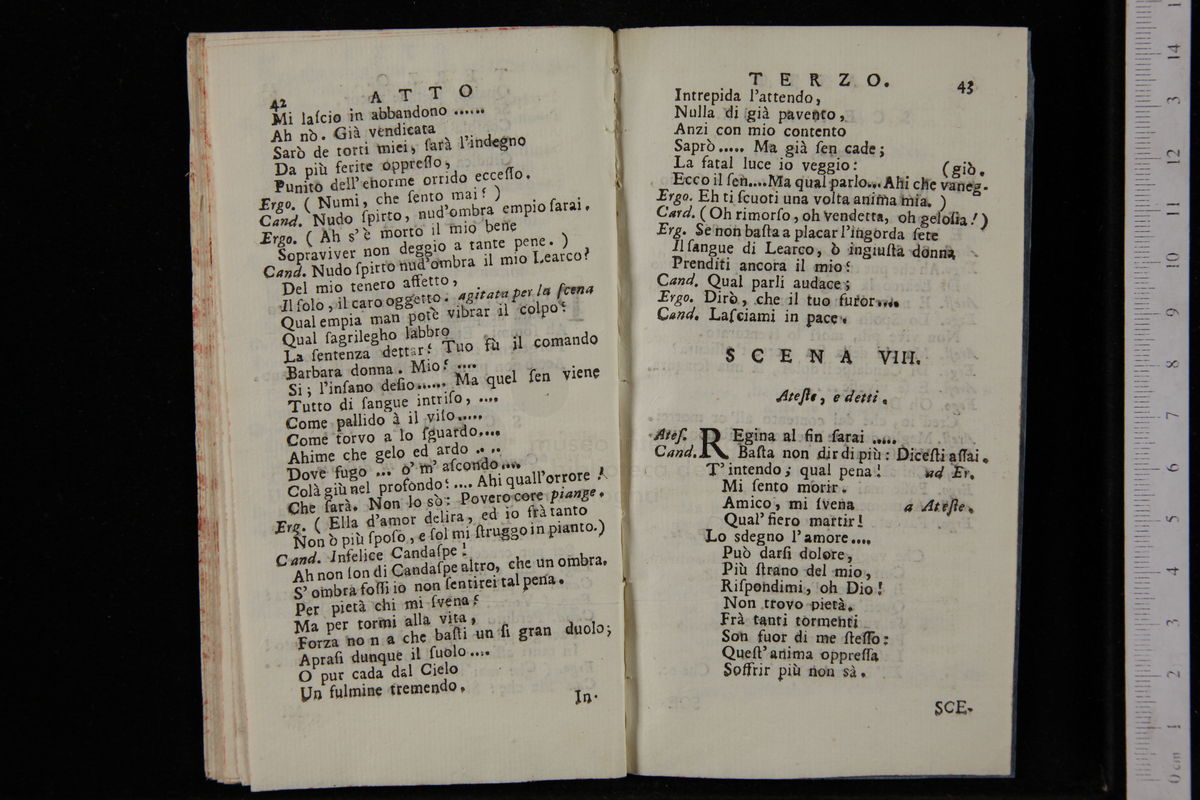 42 ATTO
Mi laſcio in abbandono ......
Ah nò. Già vendicata
Sarò de torti miei, ſarà l'indegno
Da più ferite oppreſſo,
Punito dell'enorme orrido ecceſſo.
Ergo. ( Numi, che ſento mai? )
Cand. Nudo ſpirto, nud'ombra empio ſarai.
Ergo. ( Ah s'è morto il mio bene
Sopraviver non deggio a tante pene. )
Cand. Nudo ſpirto nud'ombra il mio Learco?
Del mio tenero affetto,
Il ſolo, il caro oggetto. agitata per la ſcena
Qual empia man potè vibrar il colpo?
Qual ſagrilegho labbro
La ſentenza dettar? Tuo fù il comando
Barbara donna. Mio? ....
Si; l'inſano deſio...... Ma quel ſen viene
Tutto di ſangue intriſo, ....
Come pallido à il viſo.....
Come torvo a lo ſguardo....
Ahime che gelo ed ardo ....
Dove fugo ... ò m' aſcondo....
Colà giù nel profondo? .... Ahi quall'orrore!
Che farà. Non lo sò: Povero core piange.
Erg. ( Ella d'amor delira, ed io frà tanto
Non ò più ſpoſo, e ſol mi ſtruggo in pianto.)
Cand. Infelice Candaſpe!
Ah non ſon di Candaſpe altro, che un ombra.
S' ombra foſſi io non ſentirei tal pena.
Per pietà chi mi ſvena?
Ma per tormi alla vita,
Forza no n a che baſti un ſi gran duolo;
Apraſi dunque il ſuolo ....
O pur cada dal Cielo
Un fulmine tremendo.
In-
TERZO. 43
Intrepida l'attendo,
Nulla di già pavento,
Anzi con mio contento
Saprò ..... Ma già ſen cade;
La fatal luce io veggio: (giò.
Ecco il ſen....Ma qual parlo...Ahi che vaneg-
Ergo. Eh ti ſcuoti una volta anima mia. )
Card. ( Oh rimorſo, oh vendetta, oh geloſia! )
Erg. Se non baſta a placar l'ingorda ſete
Il ſangue di Learco, ò ingiuſta donna
Prenditi ancora il mio?
Cand. Qual parli audace;
Ergo. Dirò, che il tuo furor....
Cand. Laſciami in pace.
SCENA VIII.
Ateſte, e detti.
Ateſ. REgina al fin ſarai .....
Cand. Baſta non dir di più: Diceſti aſſai.
T' intendo; qual pena! ad Er.
Mi ſento morir.
Amico, mi ſvena a Ateſte.
Qual' fiero martir!
Lo sdegno l'amore....
Può darſi dolore,
Più ſtrano del mio,
Riſpondimi, oh Dio!
Non trovo pietà.
Frà tanti tormenti
Son fuor di me ſteſſo:
Queſt' anima oppreſſa
Soffrir più non sà.
SCE-